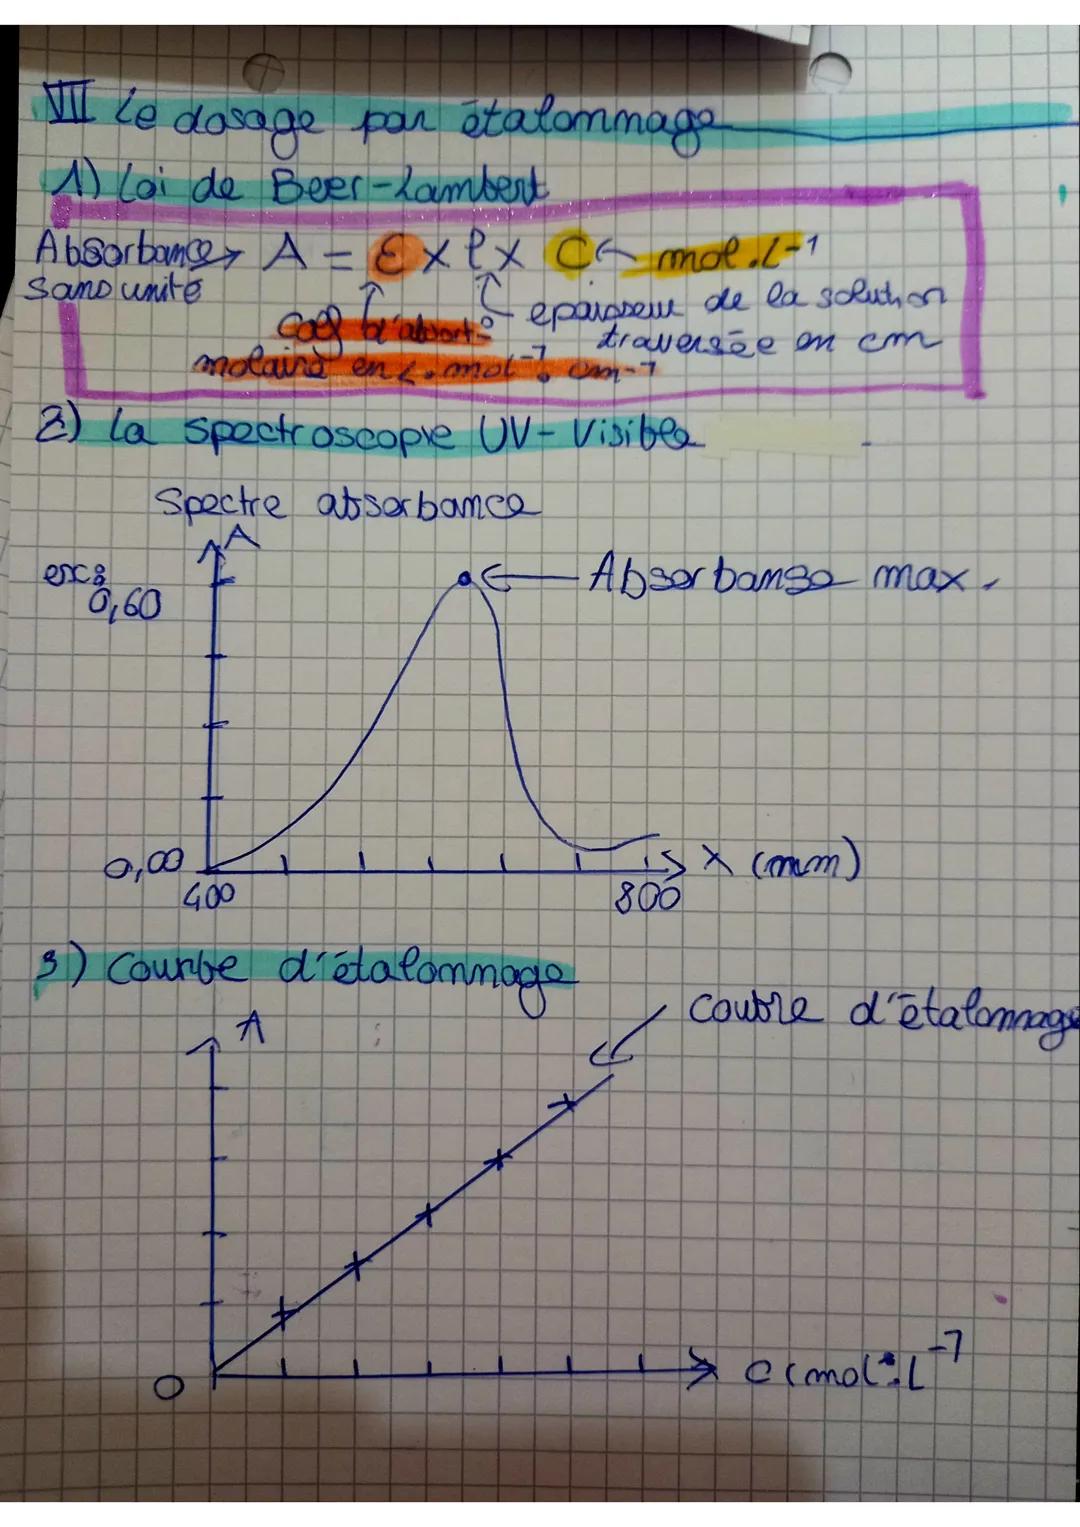 VII Le dosage par étalonnage
1) Loi de Beer-Lambert
Absorbance → A = Ɛ x l x C ← mol.L-1
sans unité
epaisseur de la solution
traversée en cm
coef d'absort°
molaire en L.mol-1.cm-1
2) La spectroscopie UV-Visible
Spectre absorbance
A
ex:
0,60
Absorbanse max.
0,00
λ (nm)
400
800
3) Courbe d'étalonnage
coubre d'étalonnage
A
0
C (mol.L-1